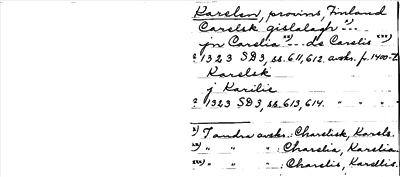 Karelen, provins, Finland
Carelsk gislalagh x)...
jn Carelia xx)... de Carelis xxx)
? 1323 SD3, ss. 611, 612. avskr. f. 1400-t
Karelsk
j Karilis
? 1323 SD3, ss. 613, 614. " " "
x) I andra avskr.: Charelisk, Karels.
xx) " " " : Charelia, Karelia.
xxx) " " " : Charelis, Karellis.